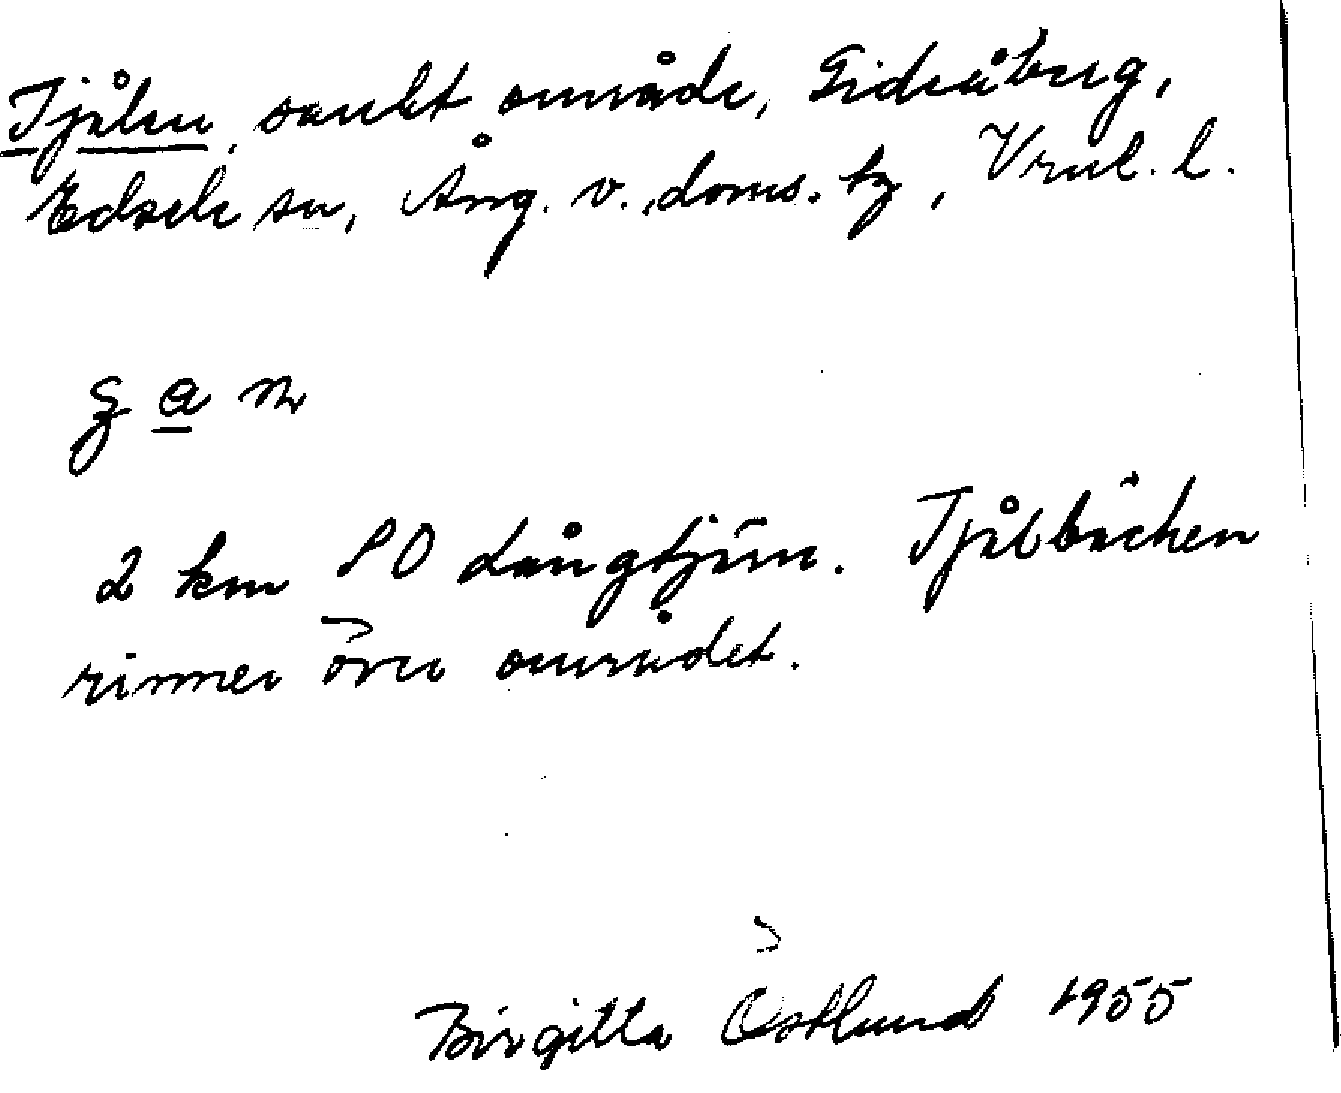 Tjålen, sankt område, Gideåberg,
Edsele sn, Ång. v. doms. tg, Vnl. l.
2 km SO Långtjärn. Tjålbäcken
rinner över området.
Birgitta Östlund 1955